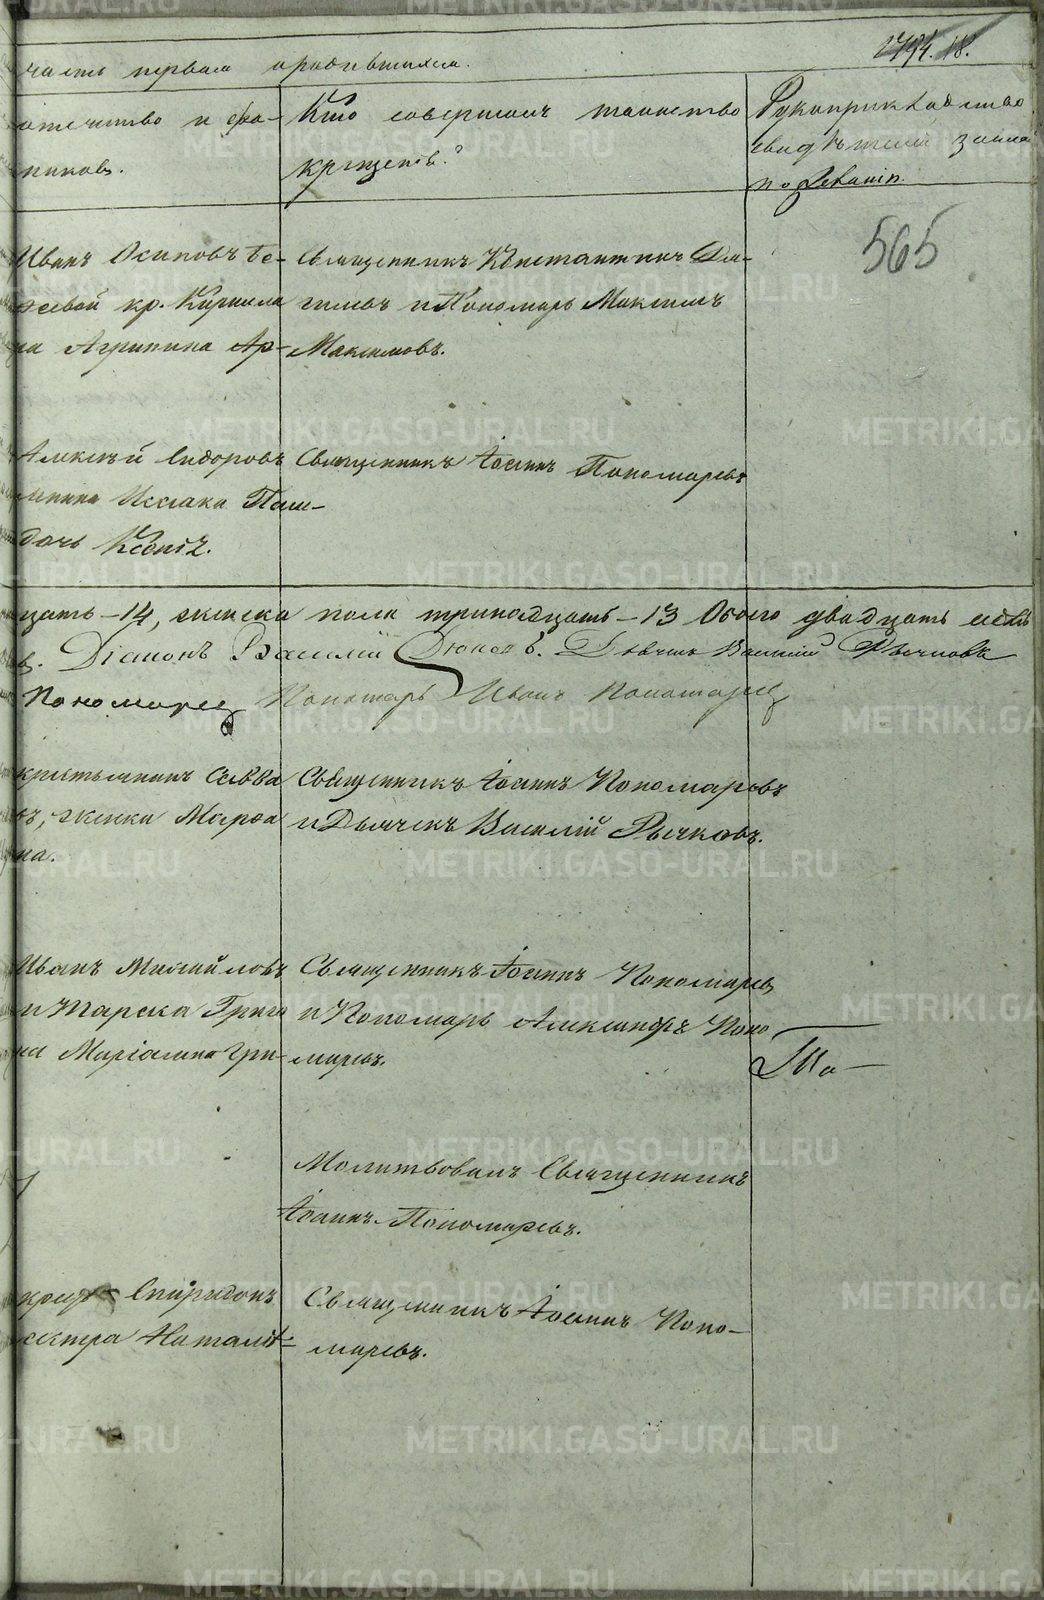 2794. 18.
часть первая о родившихся.
отечество и фа-
никовъ.
Кто совершалъ таинство
крещенія?
Рукоприкладство
свидѣтелей записи
по желанію.
565
Иванъ Осиповъ Бе-
совой кр. Кирилла
на Агрипина Ар-
Священникъ Константинъ
и Пономарь Максимъ
Максимовъ.
Алексѣй Сидоровъ
Исаака Паш-
дочь Ксенія.
Священникъ Іоаннъ Пономаревъ
цать - 14, женска пола тринадцать - 13 Обоего двадцать семь
въ. Діаконъ Василій Дюковъ. Дьячекъ Василій Рычковъ
Пономаревъ Пономарь Иванъ Пономаревъ
крестьянинъ Савва
въ, женка Марѳа
на.
Священникъ Іоаннъ Пономаревъ
и Дьячекъ Василій Рычковъ.
Иванъ Михайловъ
и Григо
на Маріамна Гри-
Священникъ Іоаннъ Пономаревъ
и Пономарь Александръ Поно
маревъ.
Молитвовалъ Священникъ
Іоаннъ Пономаревъ.
крест Спиридонъ
сестра Наталія
Священникъ Іоаннъ Поно-
маревъ.
METRIKI.GASO-URAL.RU